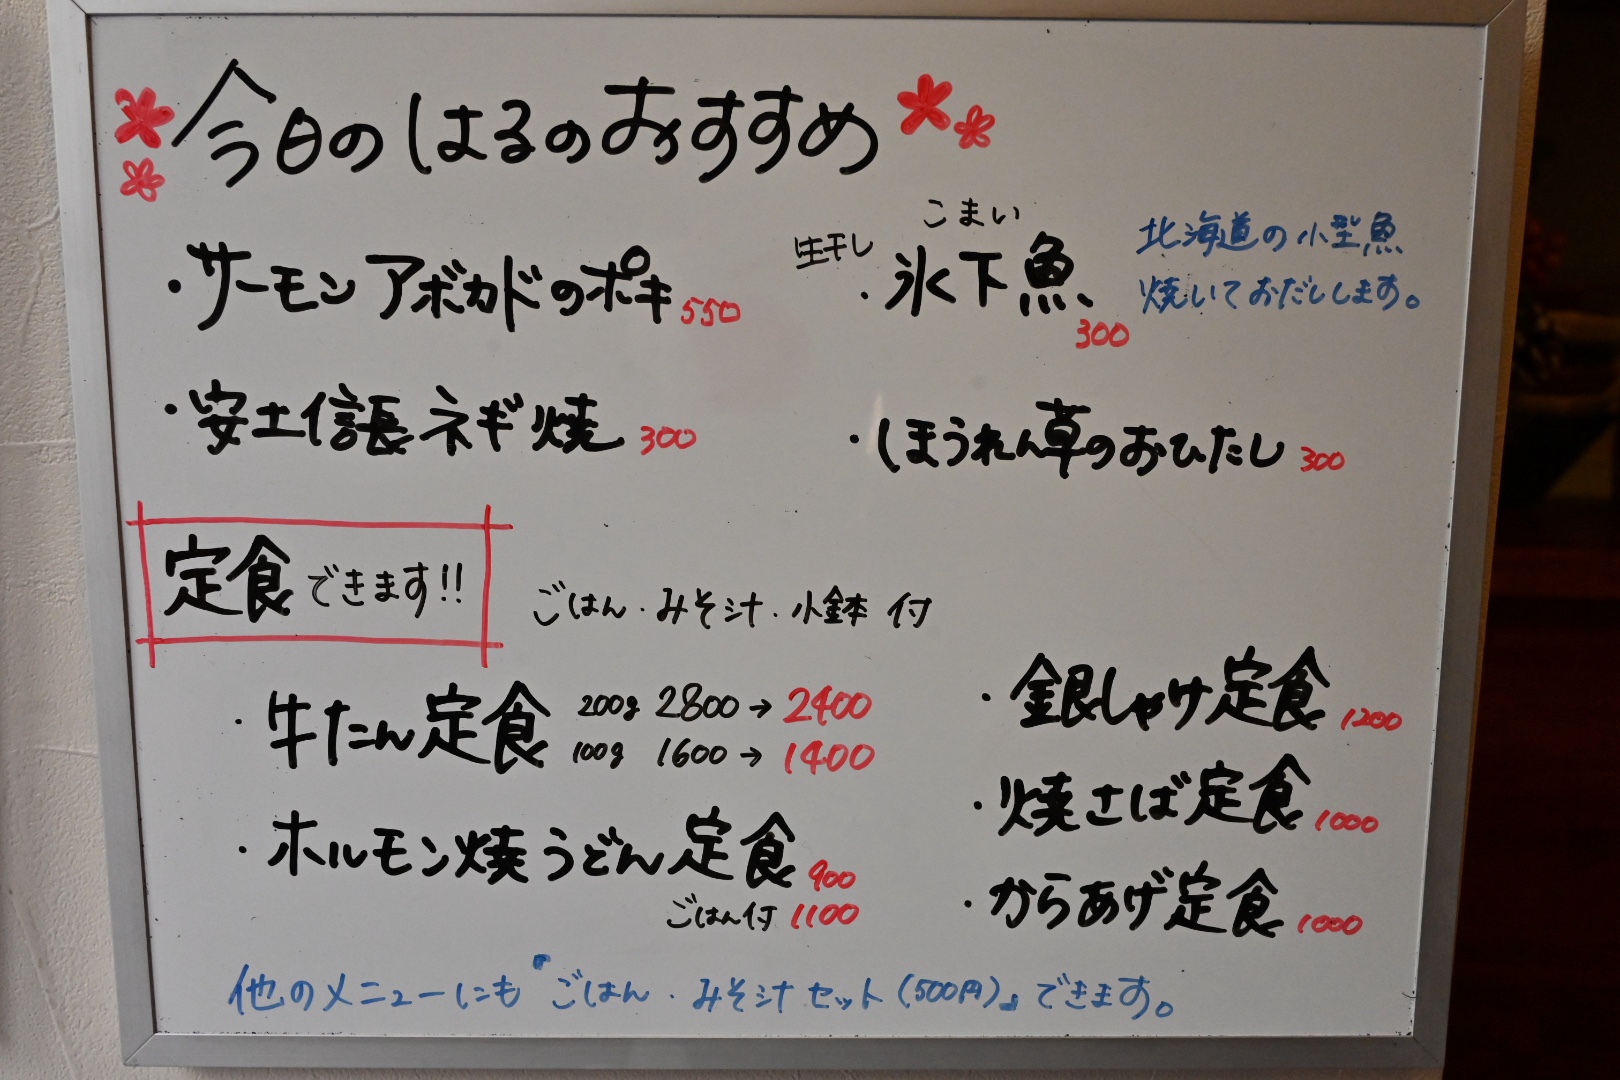 今日のはるのおすすめ
・サーモンアボカドのポキ 550
・安土信長ネギ焼 300
こまい
生干し
・氷下魚 300
北海道の小型魚
焼いておだしします。
・ほうれん草のおひたし 300
定食できます!!
ごはん・みそ汁・小鉢 付
・牛たん定食 200g 2800→2400
100g 1600→1400
・ホルモン焼うどん定食 900
ごはん付 1100
・銀しゃけ定食 1200
・焼さば定食 1000
・からあげ定食 1000
他のメニューにも『ごはん・みそ汁セット(500円)』できます。